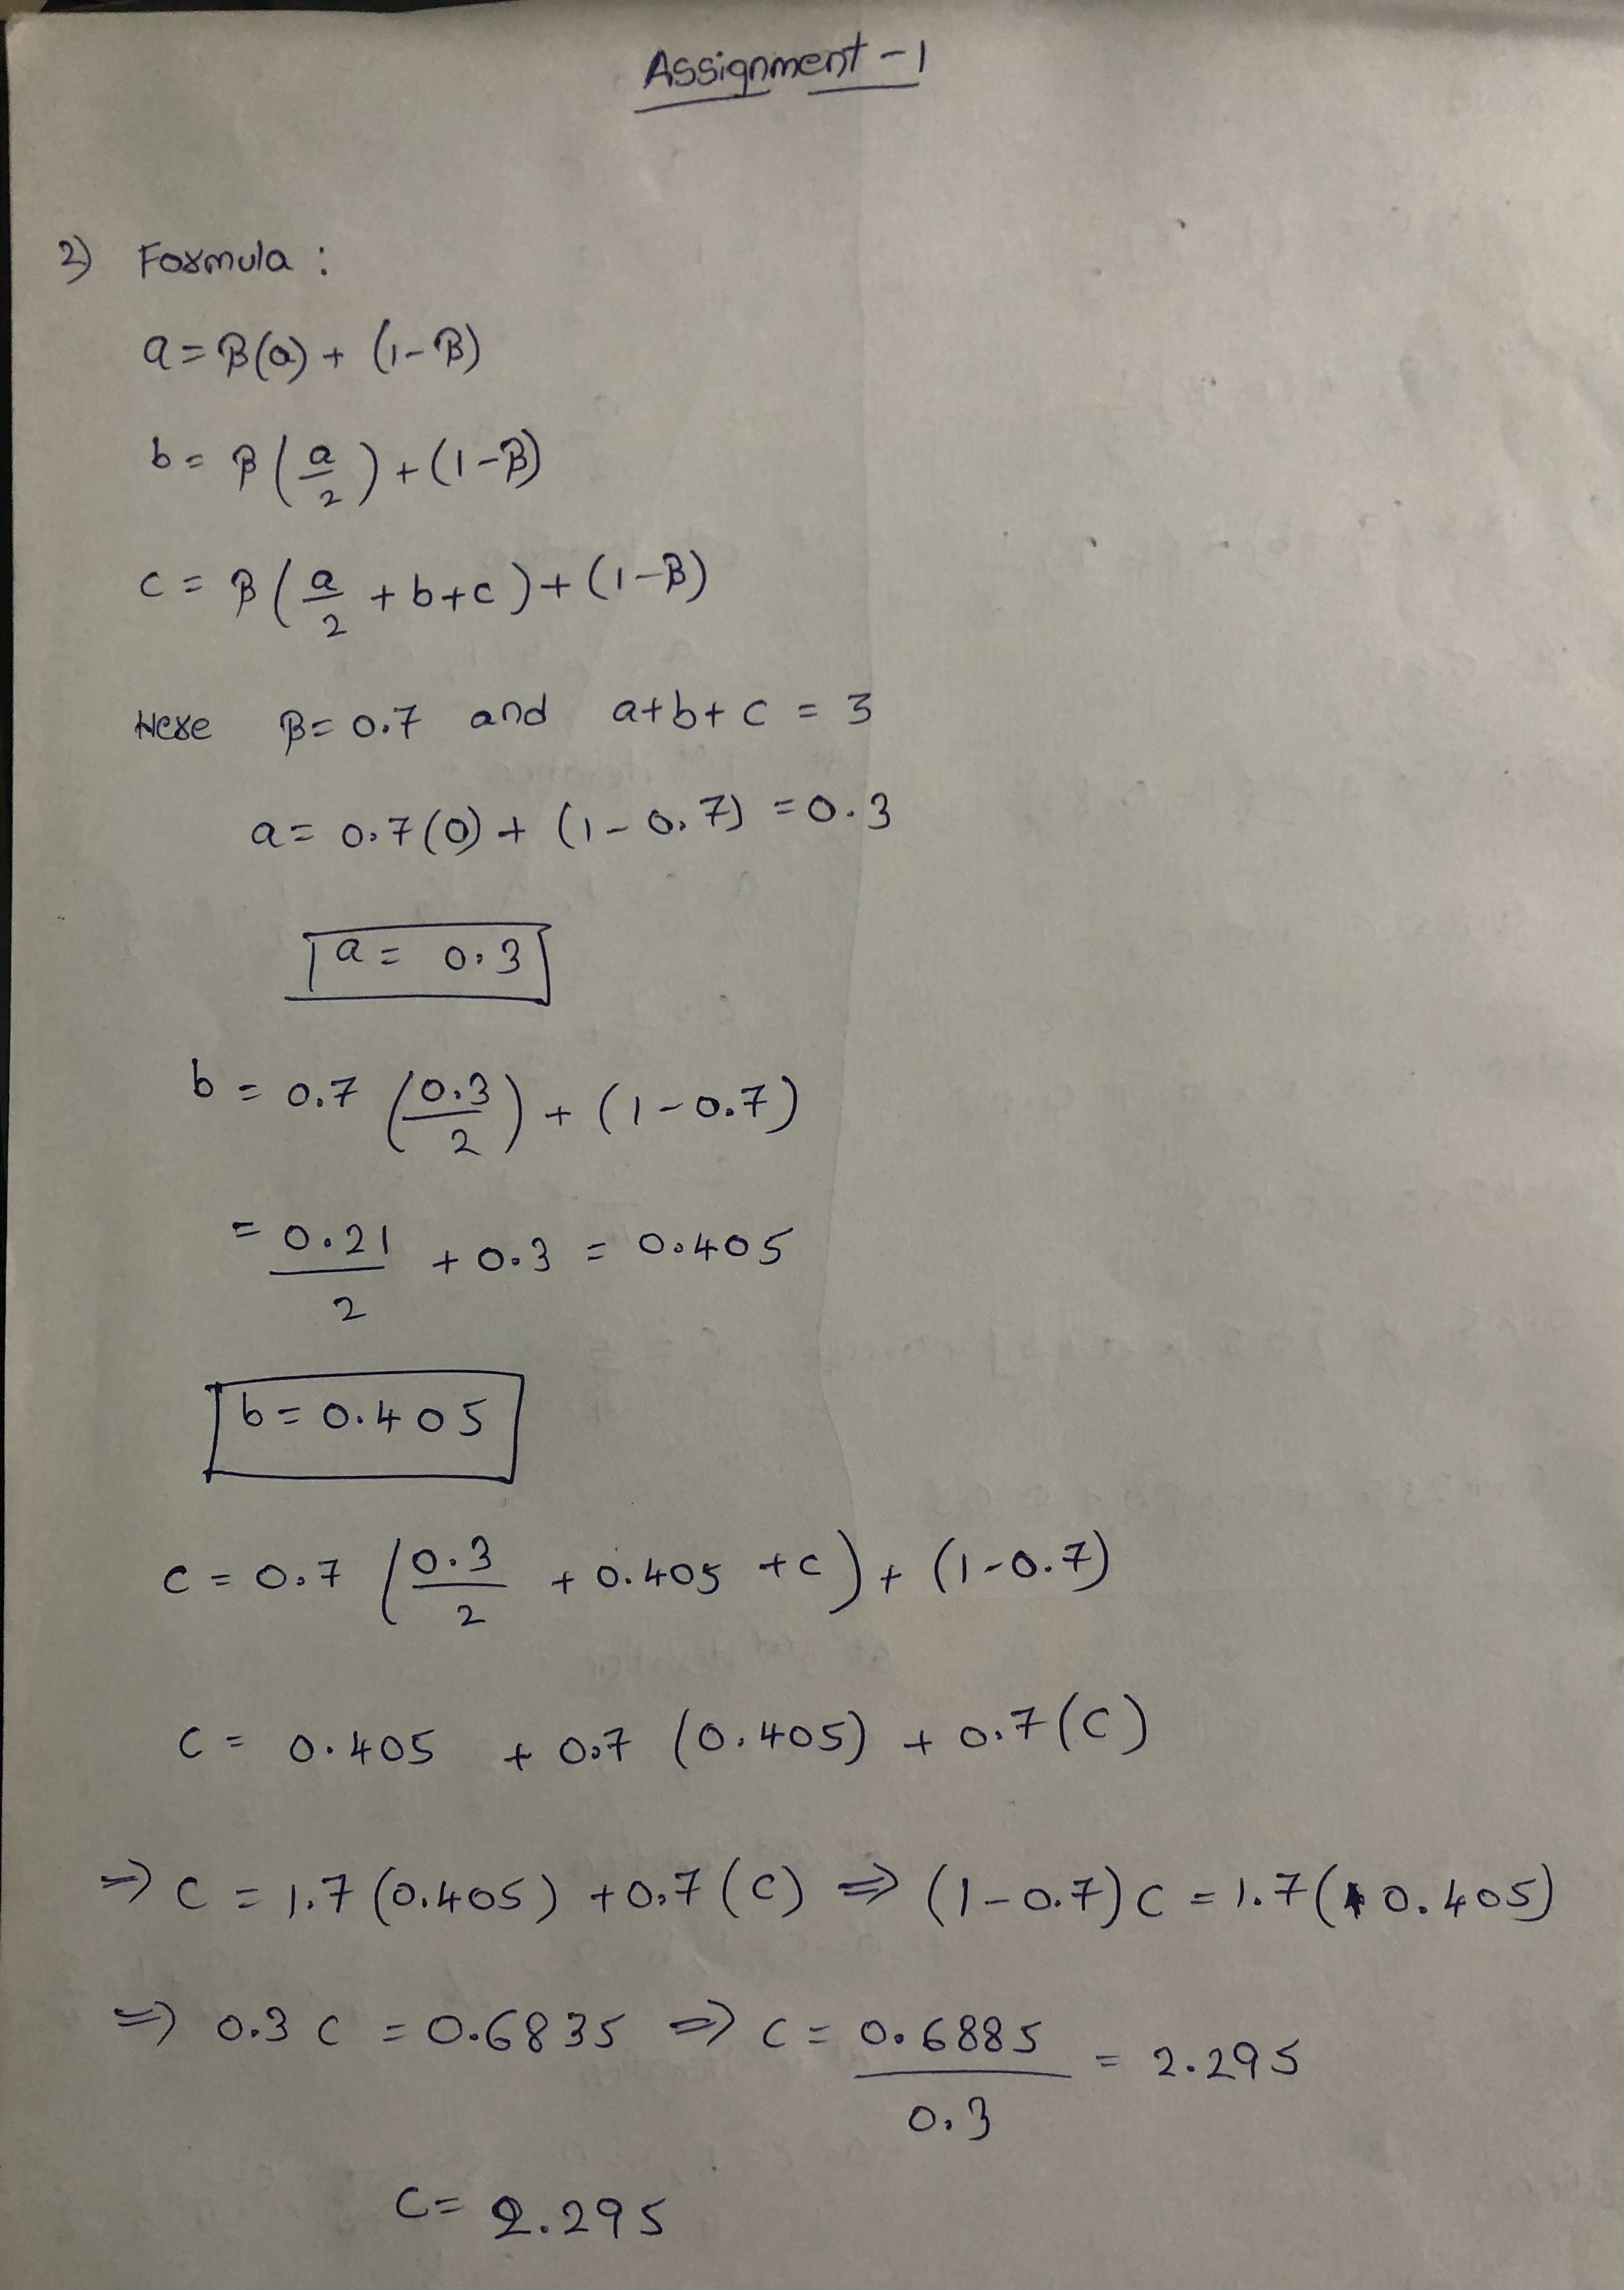 Assignment - 1
2) Formula :
a = β(0) + (1-β)
b = β(a/2) + (1-β)
c = β(a/2 + b+c) + (1-β)
Here β = 0.7 and a+b+c = 3
a = 0.7(0) + (1-0.7) = 0.3
a = 0.3
b = 0.7 (0.3/2) + (1-0.7)
= 0.21/2 + 0.3 = 0.405
b = 0.405
c = 0.7 (0.3/2 + 0.405 + c) + (1-0.7)
c = 0.405 + 0.7 (0.405) + 0.7(c)
⇒ c = 1.7(0.405) + 0.7(c) ⇒ (1-0.7)c = 1.7(0.405)
⇒ 0.3 c = 0.6835 ⇒ c = 0.6885/0.3 = 2.295
c = 2.295